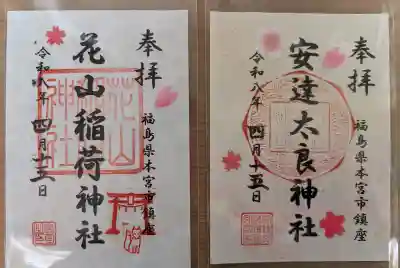 奉拝
福島県本宮市鎮座
花山稲荷神社
令和八年四月十五日
奉拝
福島県本宮市鎮座
安達太良神社
令和八年四月十五日